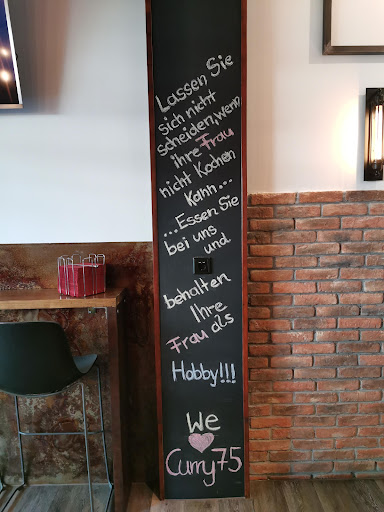 Lassen Sie
sich nicht
scheiden, wenn
ihre Frau
nicht Kochen
Kann...
...Essen Sie
bei uns
und
behalten
Ihre
Frau als
Hobby!!!
We
♥
Curry75